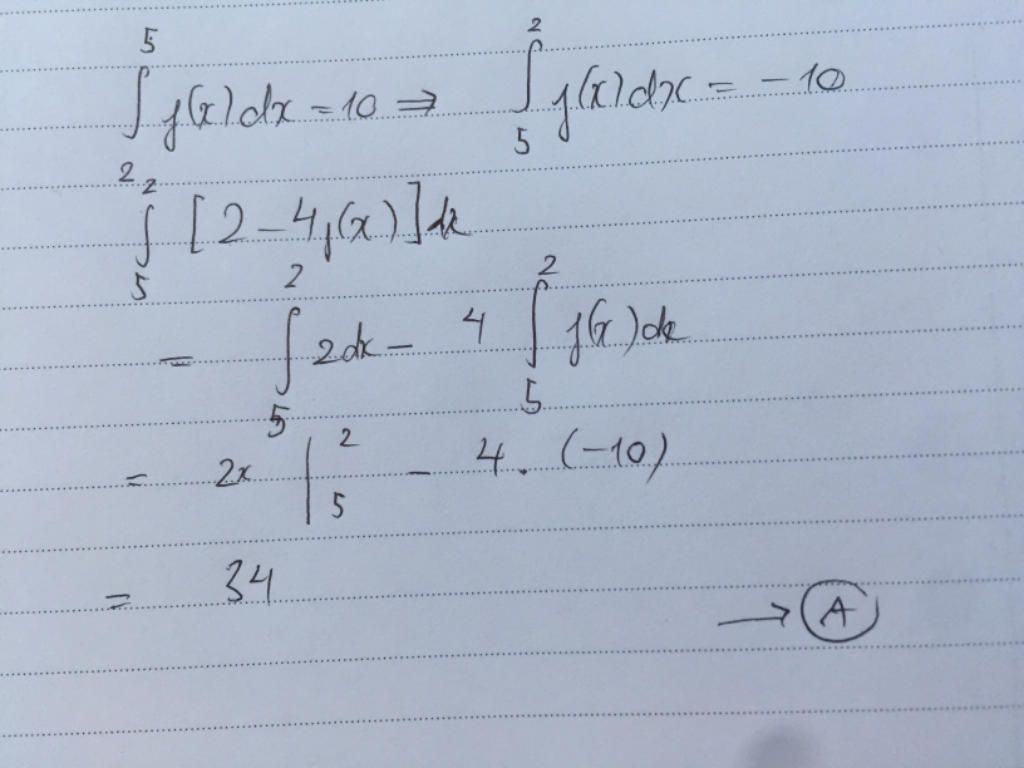 ∫₂⁵ f(x)dx = 10 ⇒ ∫₅² f(x)dx = -10
∫₅² [2-4f(x)]dx
= ∫₅² 2dx - 4 ∫₅² f(x)dx
= 2x |₅² - 4.(-10)
= 34
→ A